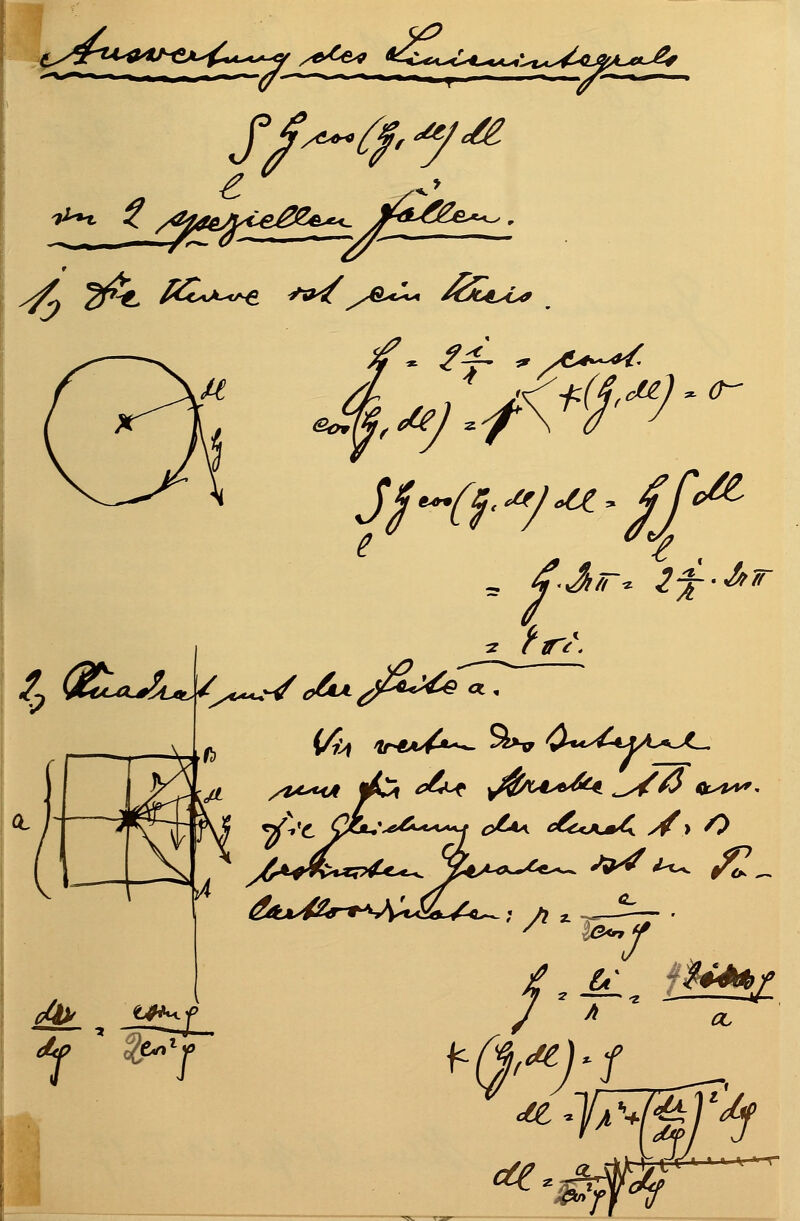 Auswertung des Linienintegrals
∫ₗ ℌ cos(ℌ, dl) dl
in 2 speziellen Fällen.
1, Die Kurve ist ein Kreis.
dl
ℌ
ℌ = 2 i/r = const.
cos(ℌ, dl) = 1 ∢(ℌ, dl) = 0
∫ₗ ℌ cos(ℌ, dl) dl = ℌ ∫ₗ dl
= ℌ · 2rπ = 2 i/r · 2rπ
= 4πi.
2, Quadrat mit der Seite a.
a
r
φ
B
dl
φ
ℌ
A
Wir werten das Integral
nur für die Strecke AB aus.
Die Gleichung der durch A, B
bestimmten Geraden ist in Po-
larkoordinaten: r = a/2cos φ.
ℌ = 2i/r = 4 i cos φ/a
dr/dφ = a sin φ/2cos² φ
∢(ℌ, dl) = φ
dl = √(r² + (dr/dφ)²) dφ
dl = a/2cos² φ dφ